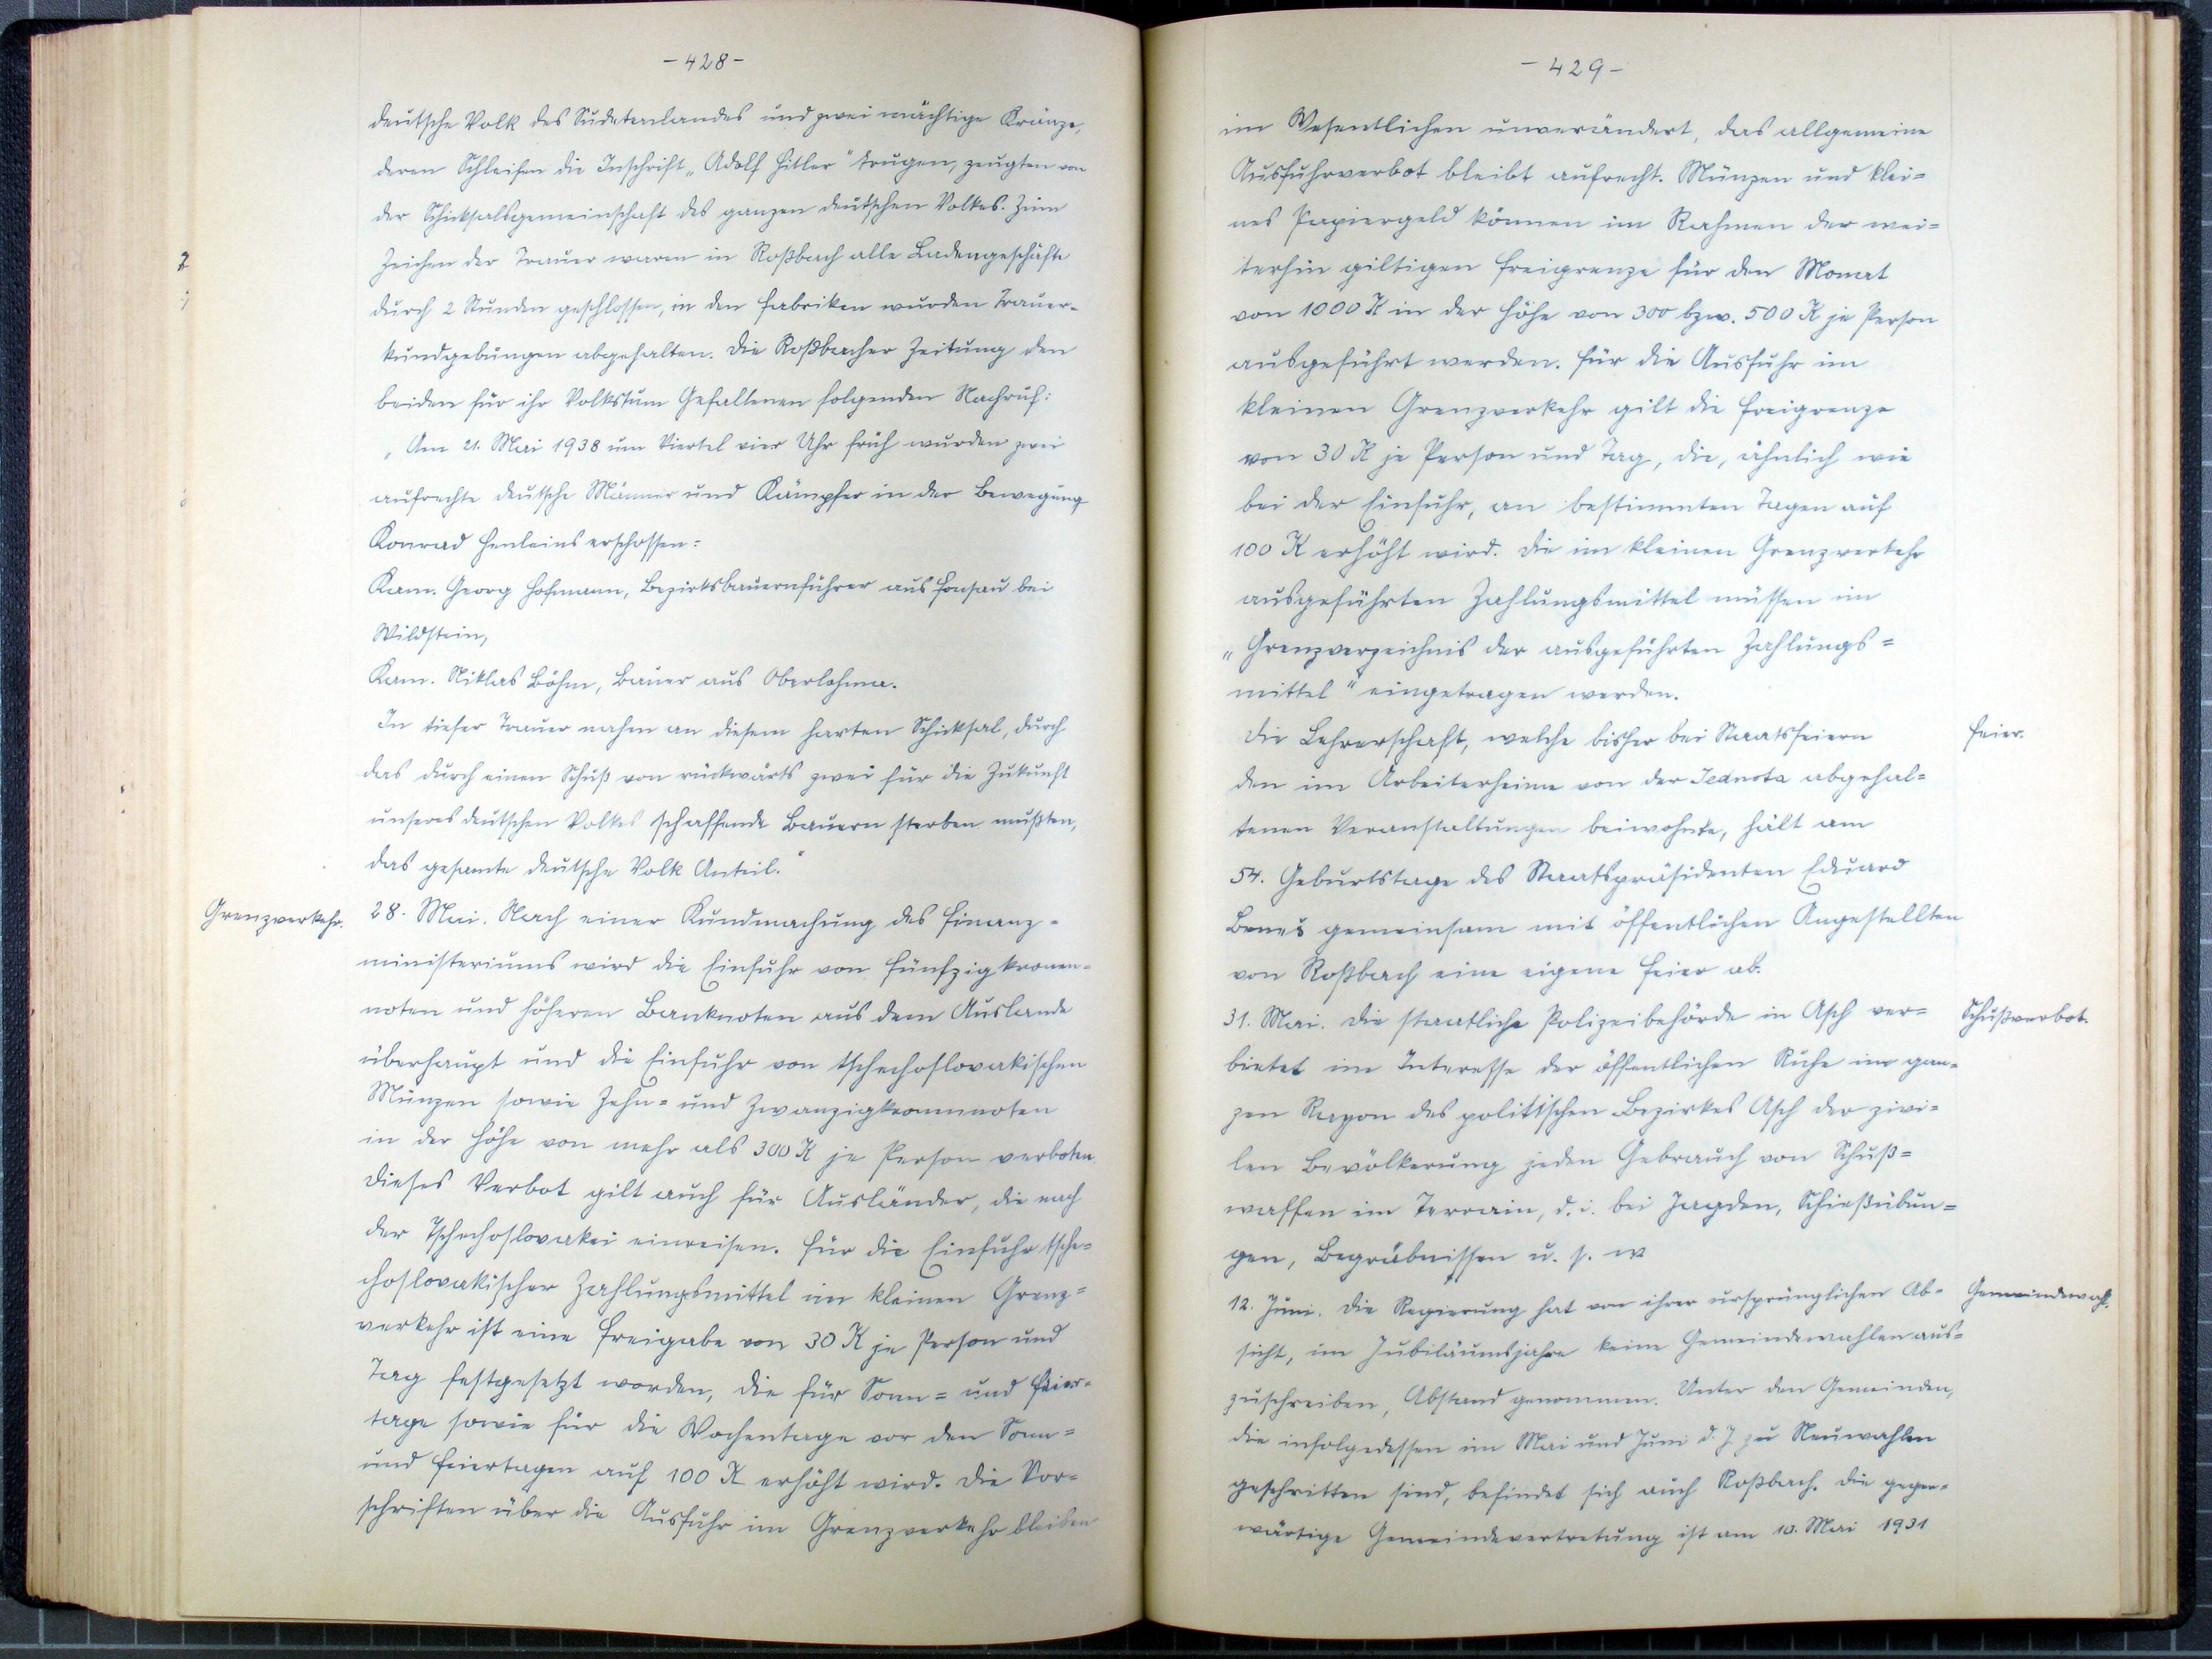 - 428 -
deutsche Volk des Sudetenlandes und zwei mächtige Kränze,
deren Schleifen die Inschrift „Adolf Hitler" trugen, zeugten von
der Schicksalsgemeinschaft des ganzen deutschen Volkes. Zum
Zeichen der Trauer waren in Roßbach alle Ladengeschäfte
durch 2 Stunden geschlossen, in den Fabriken wurden Trauer-
kundgebungen abgehalten. Die Roßbacher Zeitung den
beiden für ihr Volkstum Gefallenen folgenden Nachruf:
„Am 21. Mai 1938 um Viertel vier Uhr früh wurden zwei
aufrechte deutsche Männer und Kämpfer in der Bewegung
Konrad Henleins erschossen:
Kam. Georg Hofmann, Bezirksbauernführer aus Fonsau bei
Wildstein,
Kam. Niklas Böhm, Bauer aus Oberlohma.
In tiefer Trauer nahm an diesem harten Schicksal, durch
das durch einen Schuß von rückwärts zwei für die Zukunft
unseres deutschen Volkes schaffende Bauern sterben mußten,
das gesamte deutsche Volk Anteil."
Grenzverkehr.
28. Mai. Nach einer Kundmachung des Finanz-
ministeriums wird die Einfuhr von Fünfzigkronen-
noten und höheren Banknoten aus dem Auslande
überhaupt und die Einfuhr von tschechoslovakischen
Münzen sowie Zehn= und Zwanzigkronennoten
in der Höhe von mehr als 300 K je Person verboten.
Dieses Verbot gilt auch für Ausländer, die nach
der Tschechoslovakei einreisen. Für die Einfuhr tsche-
choslovakischer Zahlungsmittel im kleinen Grenz=
verkehr ist eine Freigabe von 30 K je Person und
Tag festgesetzt worden, die für Sonn= und Feier-
tage sowie für die Wochentage vor den Sonn=
und Feiertagen auf 100 K erhöht wird. Die Vor-
schriften über die Ausfuhr im Grenzverkehr bleiben
- 429 -
im Wesentlichen unverändert, das allgemeine
Ausfuhrverbot bleibt aufrecht. Münzen und klei=
nes Papiergeld können im Rahmen der wei=
terhin giltigen Freigrenze für den Monat
von 1000 K in der Höhe von 300 bzw. 500 K je Person
ausgeführt werden. Für die Ausfuhr im
kleinen Grenzverkehr gilt die Freigrenze
von 30 K je Person und Tag, die, ähnlich wie
bei der Einfuhr, an bestimmten Tagen auf
100 K erhöht wird. Die im kleinen Grenzverkehr
ausgeführten Zahlungsmittel müssen im
„Grenzverzeichnis der ausgeführten Zahlungs=
mittel" eingetragen werden.
Die Lehrerschaft, welche bisher bei Staatsfeiern
Feier.
den im Arbeiterheime von der Jednota abgehal=
tenen Veranstaltungen beiwohnte, hält am
54. Geburtstage des Staatspräsidenten Eduard
Beneš gemeinsam mit öffentlichen Angestellten
von Roßbach eine eigene Feier ab.
31. Mai. Die staatliche Polizeibehörde in Asch ver=
Schußverbot.
bietet im Interesse der öffentlichen Ruhe im gan=
zen Rayon des politischen Bezirkes Asch der zivi=
len Bevölkerung jeden Gebrauch von Schuß=
waffen im Terrain, d. i. bei Jagden, Schießübun=
gen, Begräbnissen u. s. w
12. Juni. Die Regierung hat von ihrer ursprünglichen Ab-
Gemeindewahl.
sicht, im Jubiläumsjahre keine Gemeindewahlen aus=
zuschreiben, Abstand genommen. Unter den Gemeinden,
die infolgedessen im Mai und Juni d. J. zu Neuwahlen
geschritten sind, befindet sich auch Roßbach. Die gegen-
wärtige Gemeindevertretung ist am 10. Mai 1931